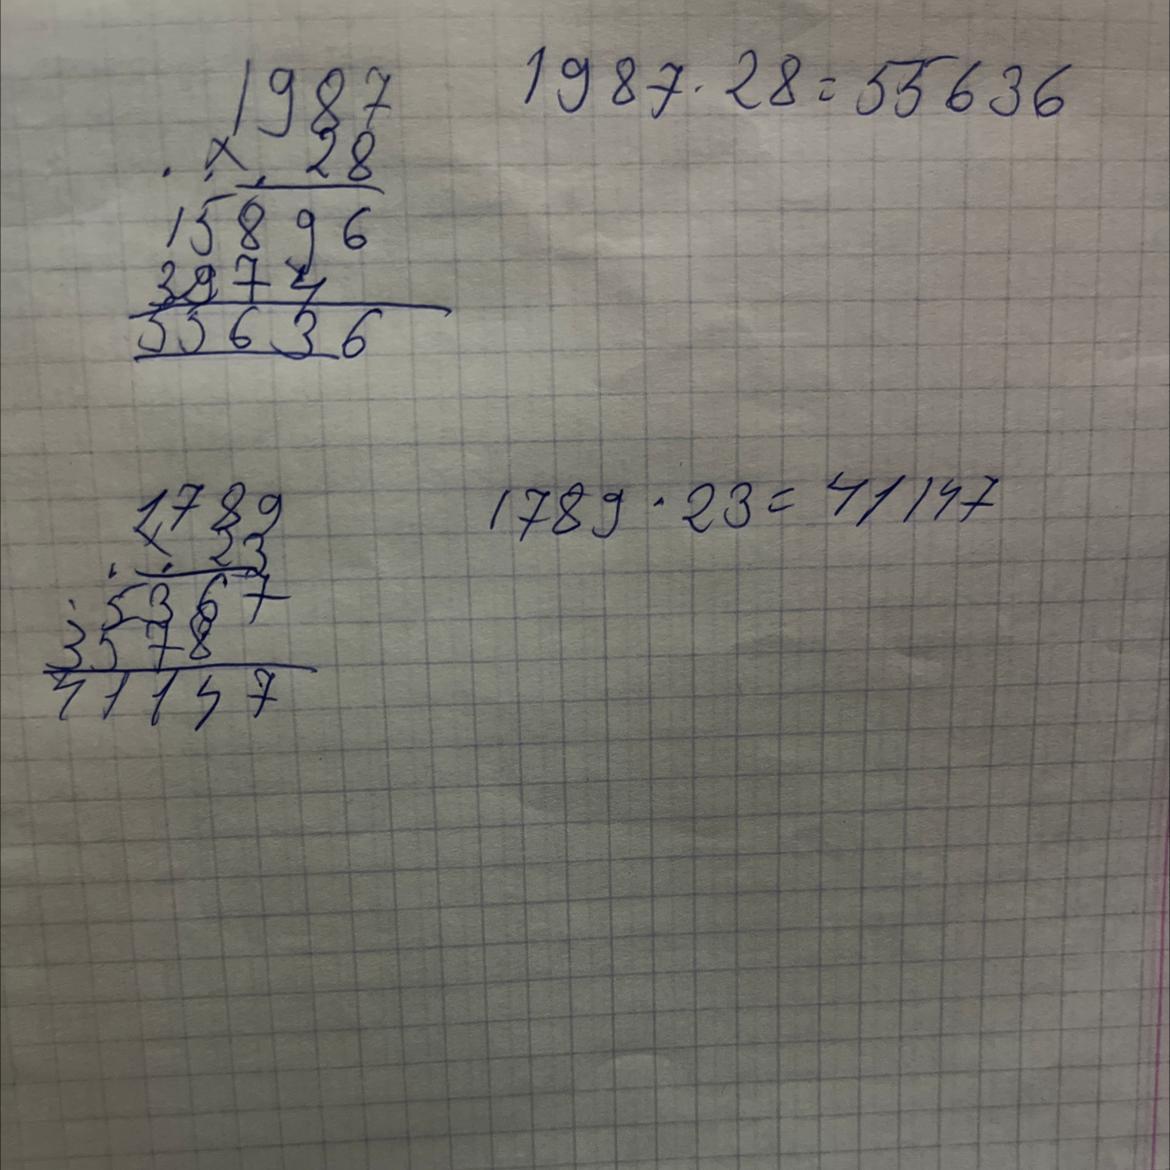 1987
× 28
15896
3974
55636
1987 · 28 = 55636
1789
× 23
5367
3578
41147
1789 · 23 = 41147